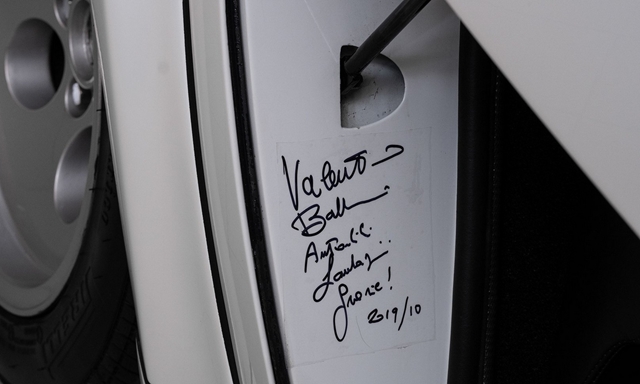 Valentino
Balboni
Automobili
Lamborghini
Grazie!
2019/10